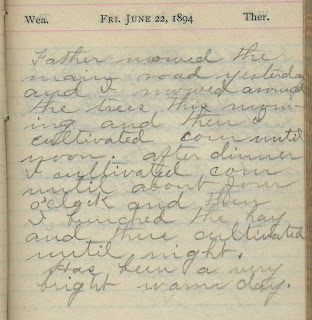 Wea. FRI. JUNE 22, 1894 Ther.
Father mowed the
main road yesterday
and I mowed around
the trees this morn-
ing and then I
cultivated corn until
noon. after dinner
I cultivated corn
until about four
o'clock and then
I bunched the hay
and then cultivated
until night.
Has been a very
bright warm day.